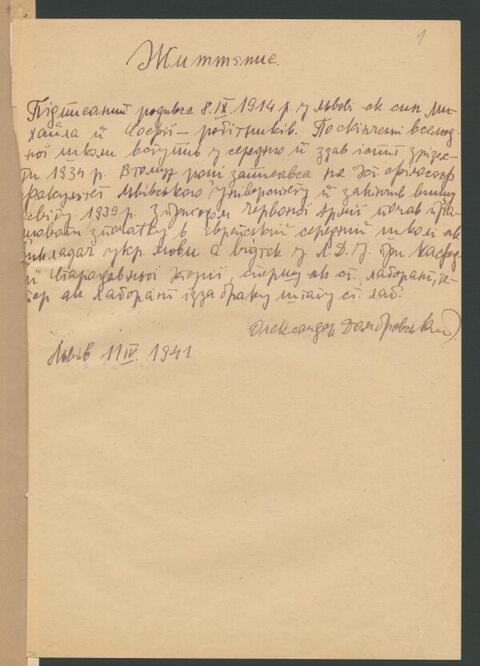 1
Життєпис.
Підписаний родився 8.IX.1914 р. у Львові як син Ми-
хайла й Йосифи – робітників. По скінченні всенод-
ної школи вступив у середню й здав іспит зріло-
сти 1934 р. В тому році записався на філософ.
факультет Львівського Університету й закінчив вищу
освіту 1939 р. З приходом Червоної Армії почав пра-
цювати зпочатку в Єврейській середній школі як
викладач укр. мови а відтак у Л.Д.У. при Кафедрі
Стародавньої Історії, спершу як ст. лаборант, те-
пер як лаборант ізза браку штату ст. лаб.
Олександер Домбровський
Львів 11 IV. 1941